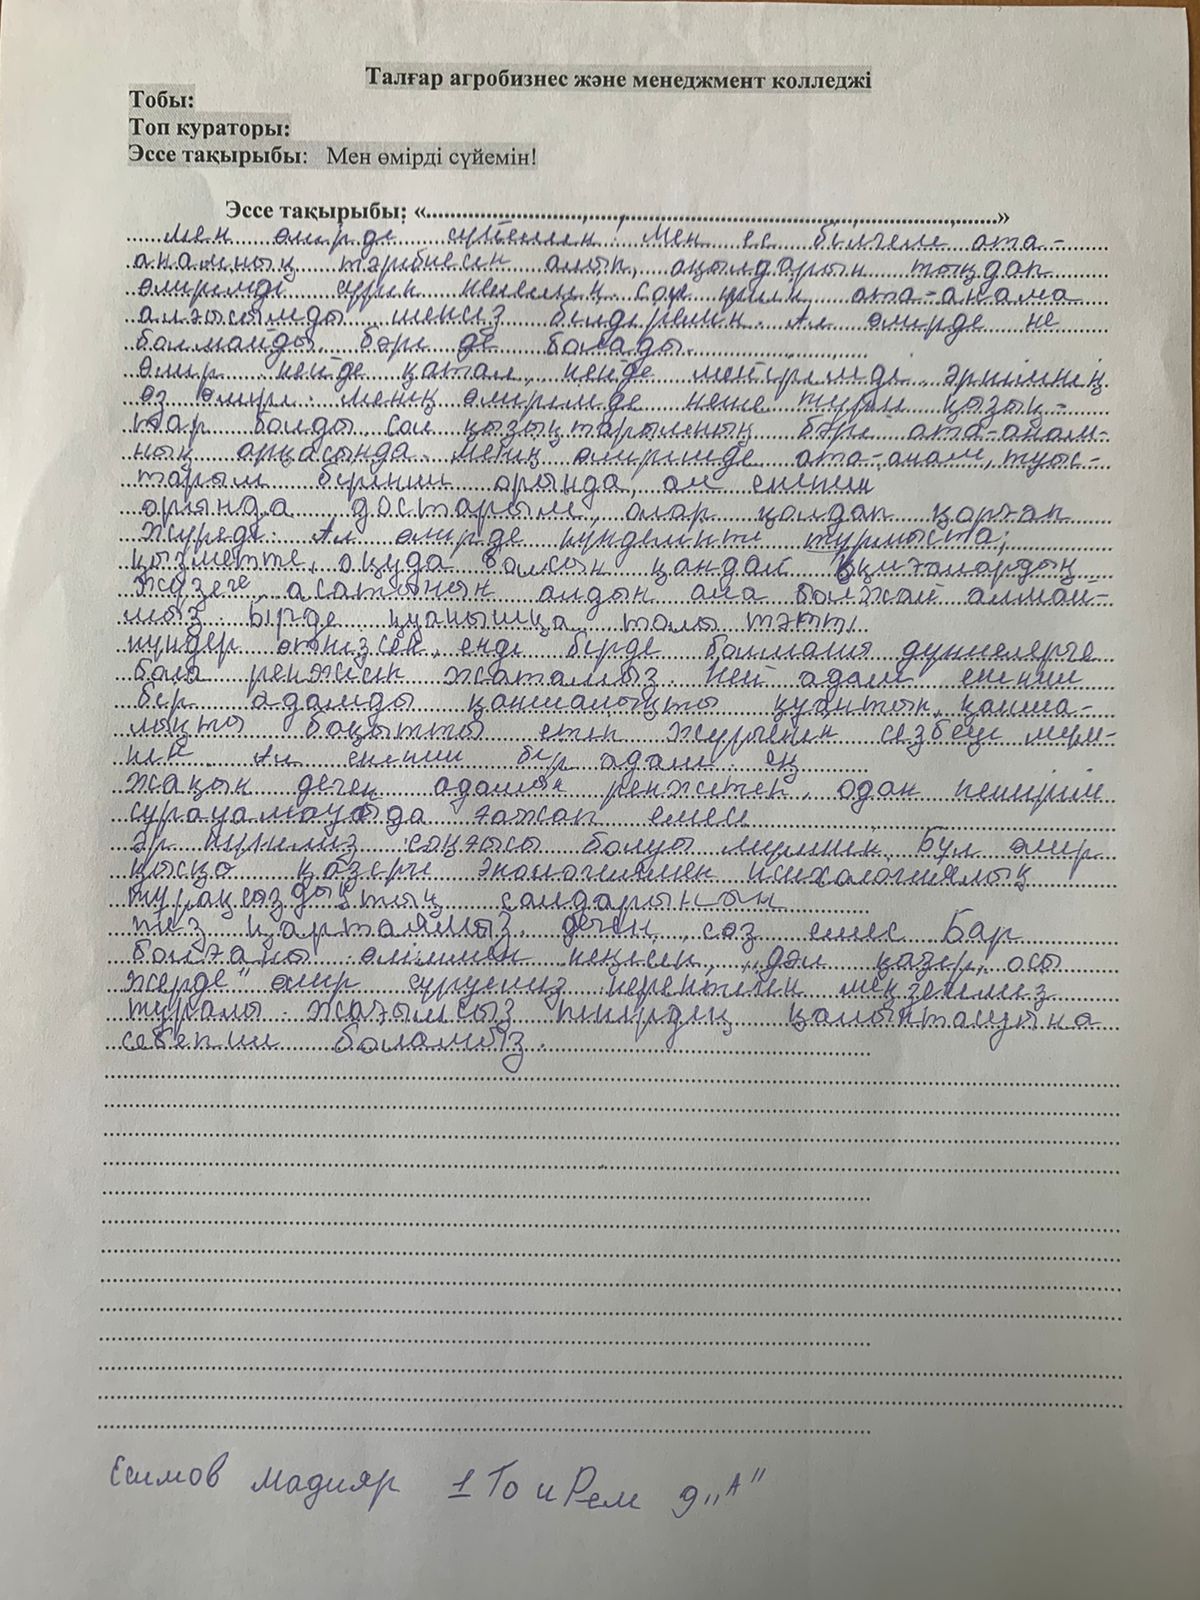 Талғар агробизнес және менеджмент колледжі
Тобы:
Топ кураторы:
Эссе тақырыбы: Мен өмірді сүйемін!
Эссе тақырыбы: «..........»
Мен өмірде сүйемін! Мен ес білгелі ата-
анамның тәрбиесін алып, ақылдарын тыңдап
өмірімді сүріп келемін. Сол үшін ата-анама
алғысымды шексіз білдіремін. Ал өмірде не
болмайды, бәрі де болады.
Өмір кейде қатал, кейде мейірімді, әркімнің
өз өмірі. Менің өмірімде неше түрлі қызық-
тар болды сол қызықтарымның бәрі ата-анам-
ның арқасында. Менің өмірімде ата-анам, туыс-
тарым бірінші орында, ал екінші
орында достарым, олар қолдап қорғап
жүреді. Ал өмірде күнделікті тұрмыста,
қызметте, оқуда болсын қандай оқиғалардың
жүзеге асатынын алдын ала болжай алмай-
мыз. Бірде қуанышқа толы тәтті
күндер өткізсек, енді бірде болмашы дүниелерге
бола ренжісіп жатамыз. Кей адам екінші
бір адамды қаншалықты қуантып, қанша-
лықты бақытты етіп жүргенін сезбеуі мүм-
кін. Ал екінші бір адам ең
жақын деген адамын ренжітеп, одан кешірім
сұрауамауыда ғажап емес
әр күніміз соңғысы болуы мүмкін. Бұл өмір
қысқа қазергі экономиямен психологиялық
тұрақсоздықтың салдарынын
тез қартаямыз деген сөз емес Бар
болғаны өмірмен кеңісіп, „дәл қазер, осы
жерде" өмір сүруеміз керектеген меңземез
туралы жағымсыз пікірдің қалыптасуына
себепші боламыз.
Есимов Мадияр 1 То и Рем 9 „А"